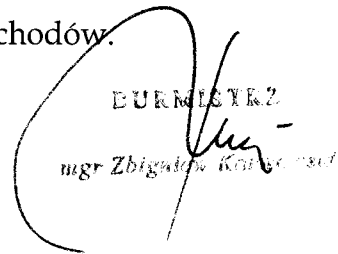 chodów.
BURMISTRZ
mgr Zbigniew